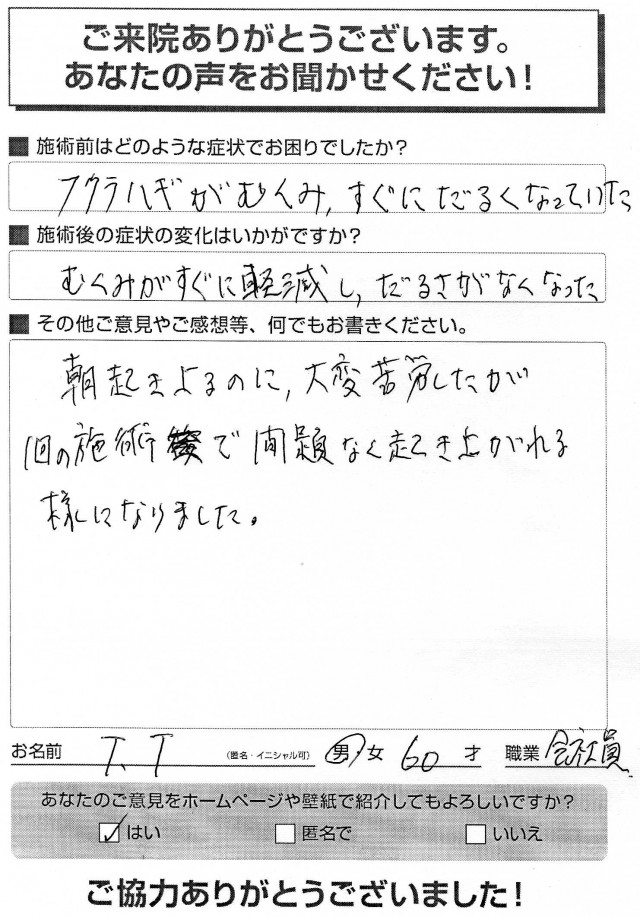 ご来院ありがとうございます。
あなたの声をお聞かせください！
■ 施術前はどのような症状でお困りでしたか？
フクラハギがむくみ,すぐにだるくなっていた
■ 施術後の症状の変化はいかがですか？
むくみがすぐに軽減し,だるさがなくなった
■ その他ご意見やご感想等、何でもお書きください。
朝起き上るのに,大変苦労したが
1回の施術後で問題なく起き上がれる
様になりました。
お名前 T.T （匿名・イニシャル可） 男・女 60 才 職業 会社員
あなたのご意見をホームページや壁紙で紹介してもよろしいですか？
☑はい □匿名で □いいえ
ご協力ありがとうございました！